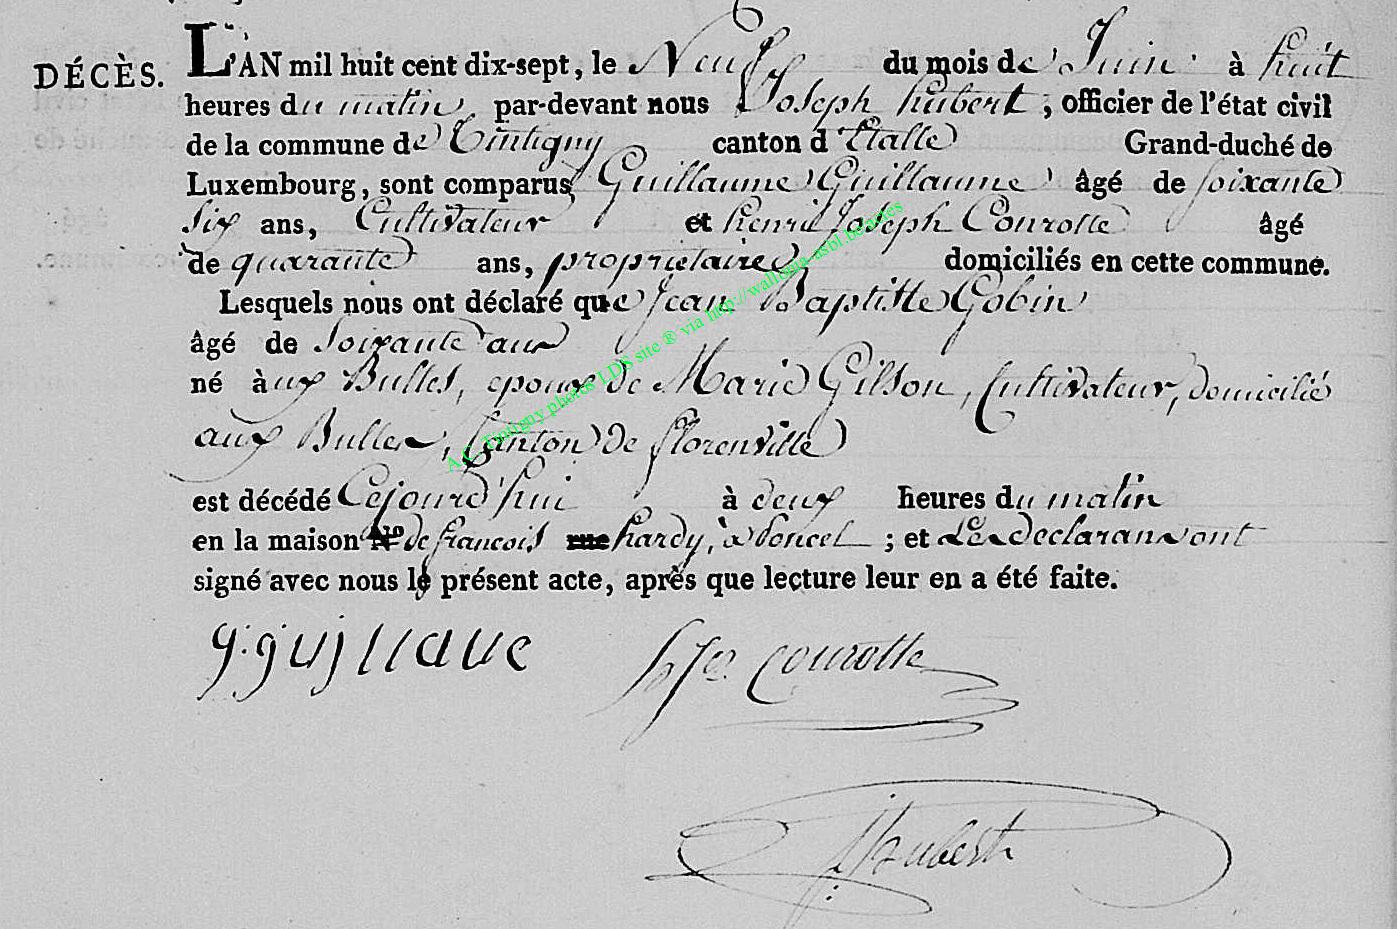 DÉCÈS. L'AN mil huit cent dix-sept, le Neuf du mois de Juin à huit
heures du matin, par-devant nous Joseph hubert, officier de l'état civil
de la commune de Tintigny canton d'Etalle Grand-duché de
Luxembourg, sont comparus Guillaume Guillaume âgé de soixante
Six ans, Cultivateur et henri Joseph Courotte âgé
de quarante ans, proprietaire domiciliés en cette commune.
Lesquels nous ont déclaré que Jean Baptiste Gobin
âgé de Soixante ans
né àux Bulles, epoux de Marie Gilson, Cultivateur, domicilié
aux Bulles, Canton de florenville
est décédé Cejourd'hui à deux heures du matin
en la maison N.º de francois rue hardy, à poncel ; et Les declarans ont
signé avec nous le présent acte, après que lecture leur en a été faite.
g. guillaue Courotte
JHubert
A.C. Tintigny photos LDS site ® via http://wallonia-asbl.be/actes